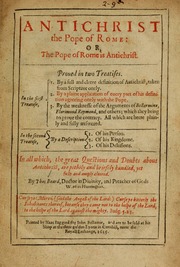 ANTICHRIST
the Pope of ROME:
OR,
The Pope of Rome is Antichrist.
Proved in two Treatises.
In the first Treatise,
1. By a full and cleere definition of Antichrist, taken from Scripture onely.
2. By a plaine application of every part of the definition agreeing onely with the Pope.
3. By the weaknesse of the Arguments of Bellarmine, Florimond Raymond, and others, which they bring to prove the contrary. All which are here plainly and fully answered.
In the second Treatise,
By a Description
1. Of his Person.
2. Of his Kingdome.
3. Of his Delusions.
In all which, the great Questions and Doubts about Antichrist, are pithely and briefely handled, yet fully and amply cleered.
By Tho. Beard, Doctor in Divinity, and Preacher of Gods Word at Huntington.
to the helpe of the Lord against the mighty. Judg. 5.23.
Printed by Isaac Jaggard for John Bellamie,
Royall Exchange, 1625.